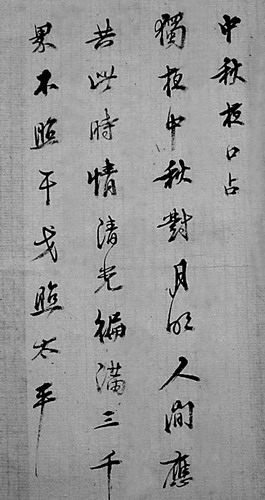 中秋夜口占
獨夜中秋對月明人間應
共此時情清光徧滿三千
界不照干戈照太平